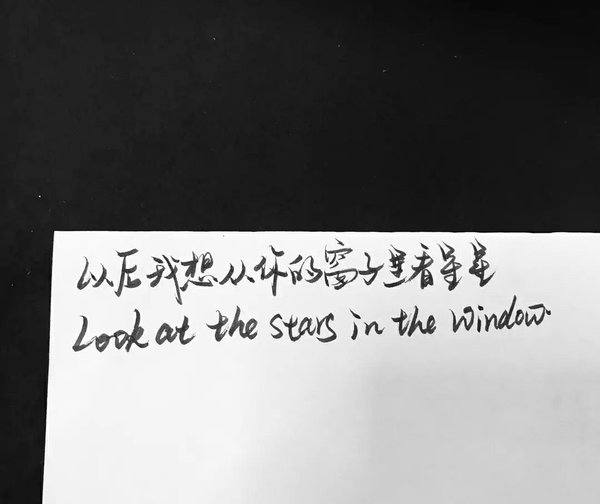 以后我想从你的窗子里看星星
Look at the stars in the window.